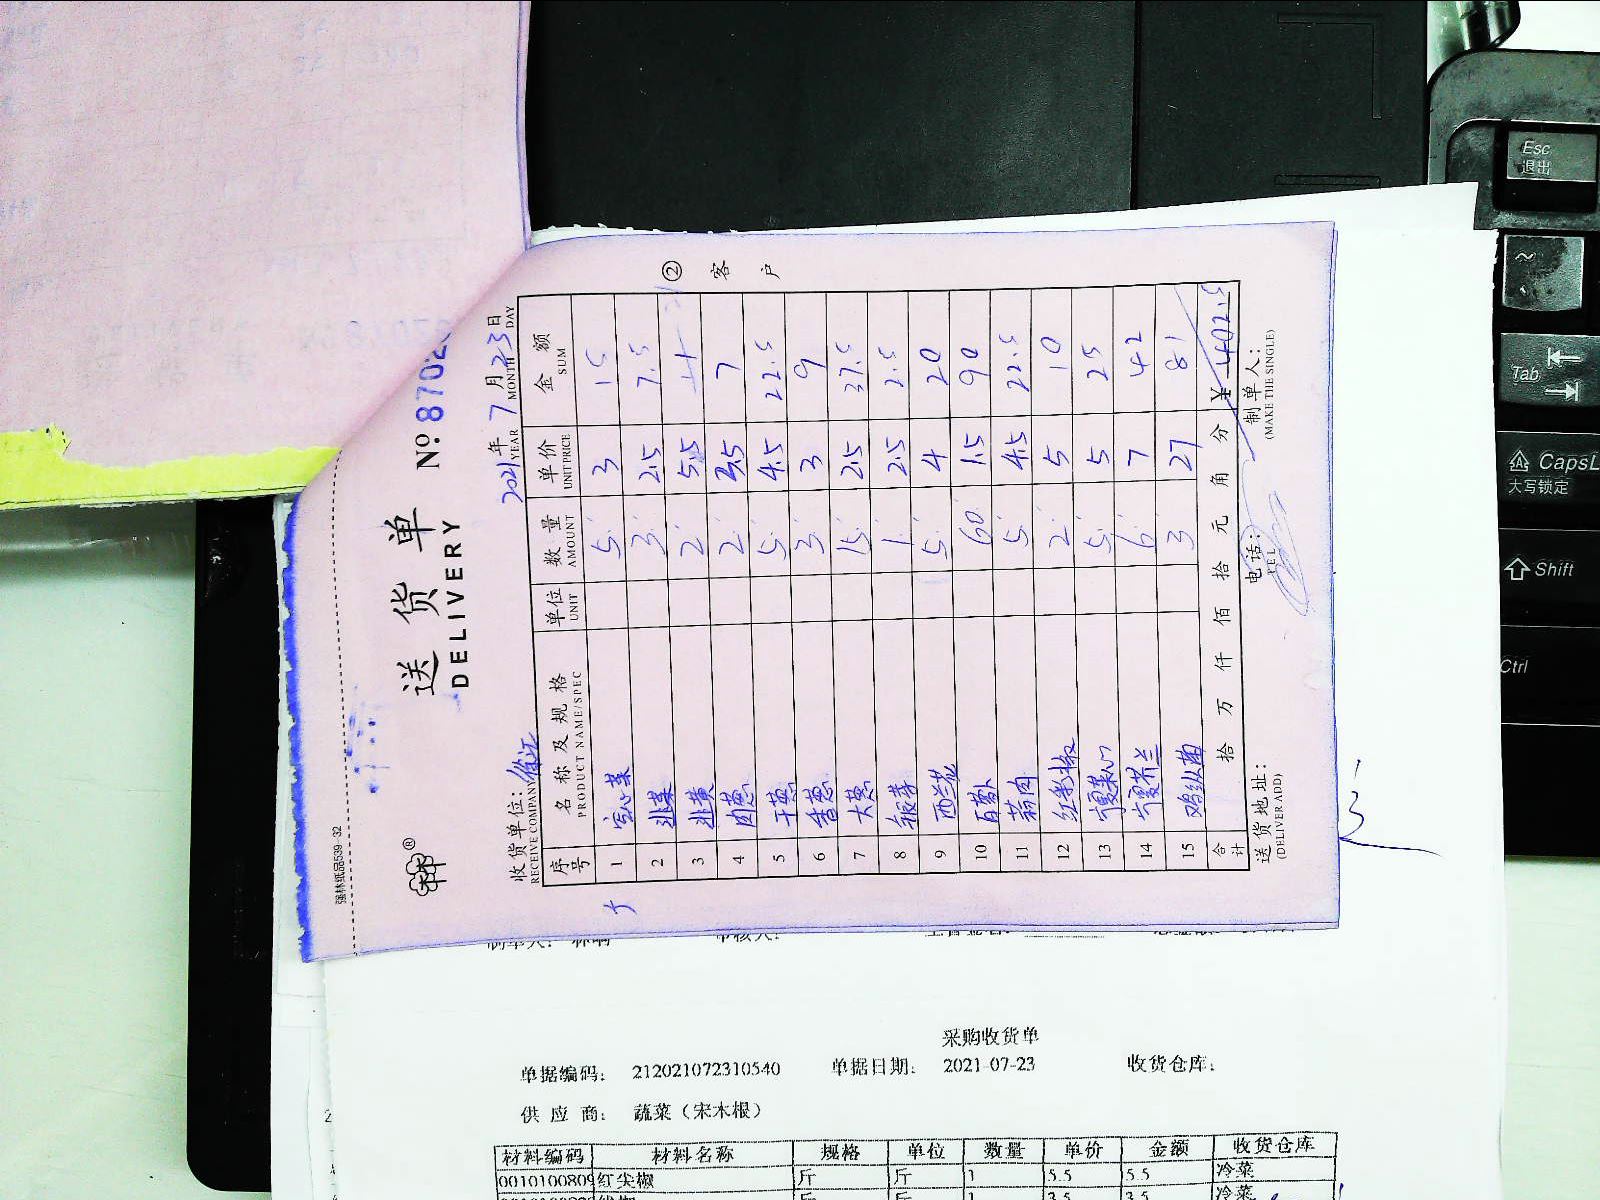 强林纸品539-32
送货单
DELIVERY
№ 8702
2021年 7月 23日
YEAR MONTH DAY
收货单位：
RECEIVE COMPANY
序号 名称及规格 单位 数量 单价 金额
PRODUCT NAME/SPEC UNIT AMOUNT UNIT PRICE SUM
1 空心菜 5 3 15
2 韭菜 3 2.5 7.5
3 韭黄 2 5.5 11
4 肉葱 2 3.5 7
5 干葱 5 4.5 22.5
6 香葱 3 3 9
7 大葱 15 2.5 37.5
8 银芽 1 2.5 2.5
9 西兰花 5 4 20
10 白萝卜 60 1.5 90
11 蒜肉 5 4.5 22.5
12 红彩椒 2 5 10
13 宁夏菜心 5 5 25
14 宁夏芥兰 6 7 42
15 鸡纵菌 3 27 81
合计 拾 万 仟 佰 拾 元 角 分 ¥ 402.5
送货地址： 电话： 制单人：
(DELIVER ADD) TEL (MAKE THE SINGLE)
② 客户
采购收货单
单据编码： 212021072310540 单据日期： 2021-07-23 收货仓库：
供应商： 蔬菜（宋木根）
材料编码 材料名称 规格 单位 数量 单价 金额 收货仓库
0010100809 红尖椒 斤 斤 1 5.5 5.5 冷菜
1 3.5 3.5 冷菜
Esc
退出
~
Tab
CapsL
大写锁定
Shift
Ctrl